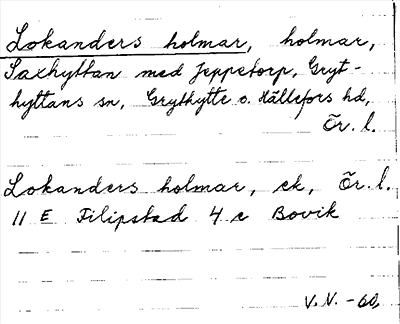 Lokanders holmar, holmar,
Saxhyttan med Jeppetorp, Gryt-
hyttans sn, Grythytte o. Hällefors hd,
Ör. l.
Lokanders holmar, ek, Ör. l.
11 E Filipstad 4 c Bovik
V.N. -60,